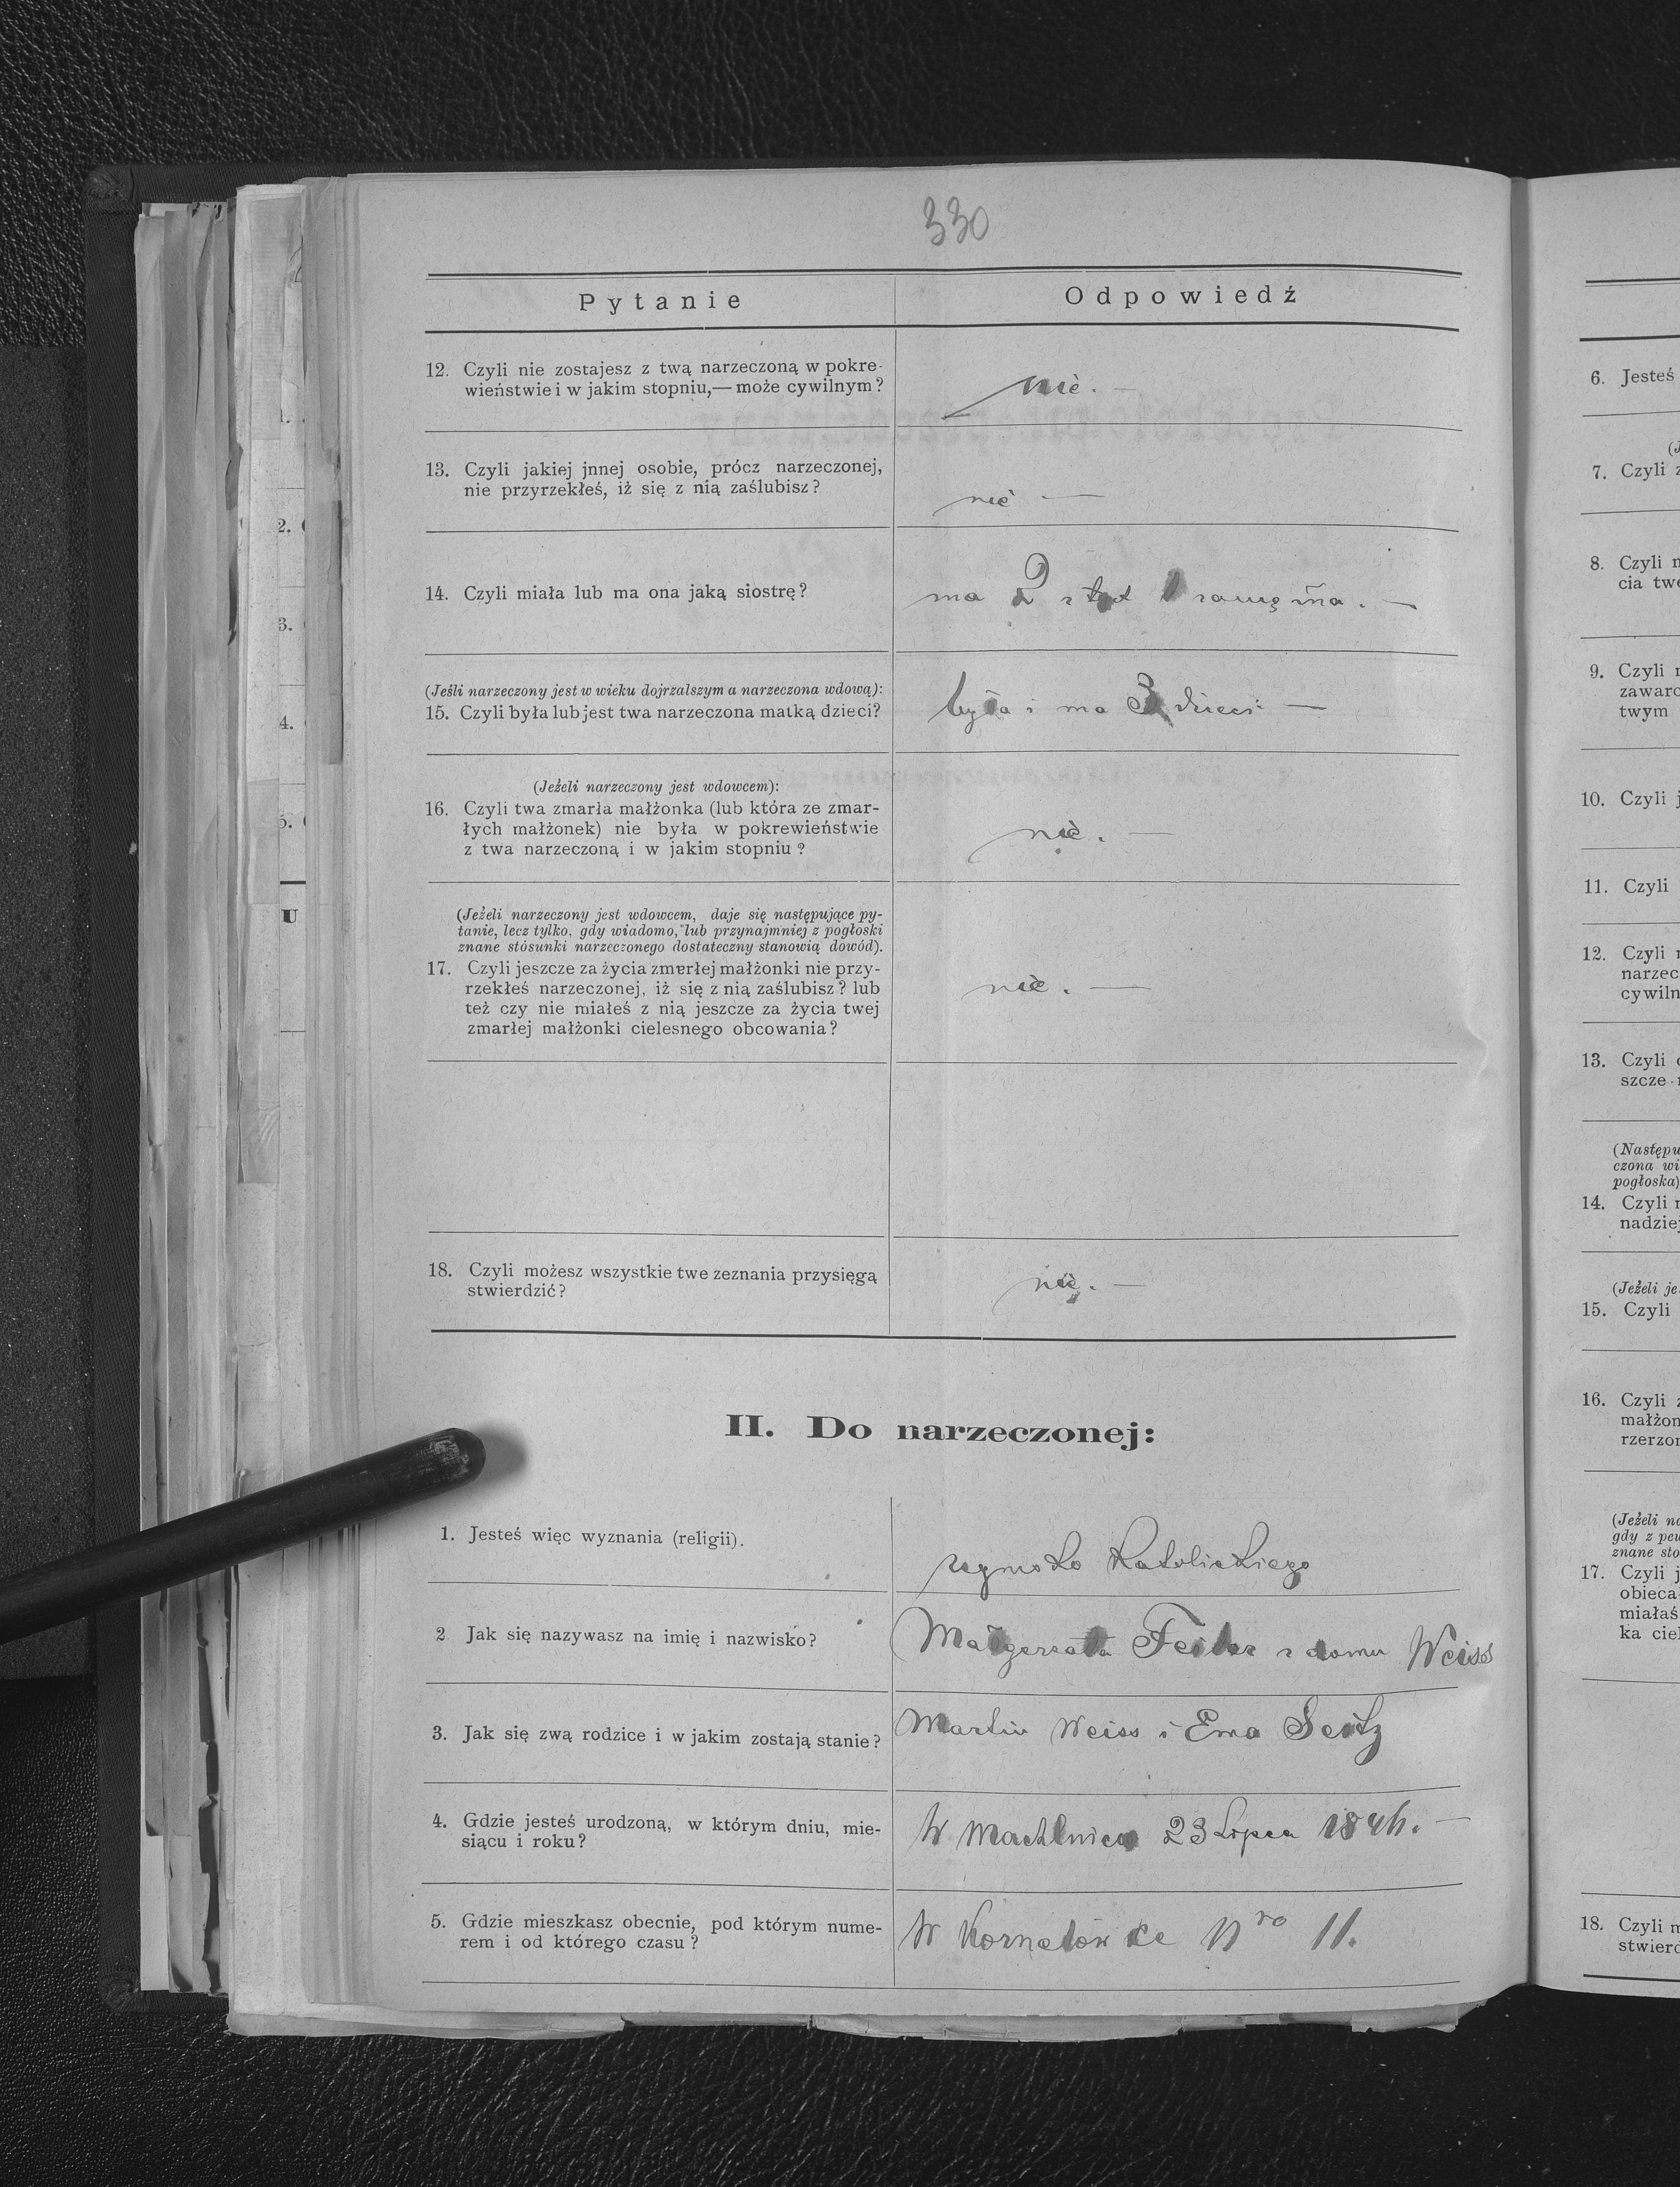 330
Pytanie
Odpowiedź
12. Czyli nie zostajesz z twą narzeczoną w pokre-
wieństwie i w jakim stopniu,— może cywilnym?
nie. —
13. Czyli jakiej jnnej osobie, prócz narzeczonej,
nie przyrzekłeś, iż się z nią zaślubisz?
nie —
14. Czyli miała lub ma ona jaką siostrę?
ma 2 z tąd 1 zamężna. —
(Jeśli narzeczony jest w wieku dojrzalszym a narzeczona wdową):
15. Czyli była lub jest twa narzeczona matką dzieci?
była i ma 3 dzieci —
(Jeżeli narzeczony jest wdowcem):
16. Czyli twa zmarła małżonka (lub która ze zmar-
łych małżonek) nie była w pokrewieństwie
z twa narzeczoną i w jakim stopniu?
nie. —
(Jeżeli narzeczony jest wdowcem, daje się następujące py-
tanie, lecz tylko, gdy wiadomo, lub przynajmniej z pogłoski
znane stósunki narzeczonego dostateczny stanowią dowód).
17. Czyli jeszcze za życia zmerłej małżonki nie przy-
rzekłeś narzeczonej, iż się z nią zaślubisz? lub
też czy nie miałeś z nią jeszcze za życia twej
zmarłej małżonki cielesnego obcowania?
nie. —
18. Czyli możesz wszystkie twe zeznania przysięgą
stwierdzić?
nie. —
II. Do narzeczonej:
1. Jesteś więc wyznania (religii).
rzymsko Katolickiego
2 Jak się nazywasz na imię i nazwisko?
Małgorzata z domu Weiss
3. Jak się zwą rodzice i w jakim zostają stanie?
Martin Weiss i Ewa Seitz
4. Gdzie jesteś urodzoną, w którym dniu, mie-
siącu i roku?
W Machlińcu 23 Lipca 1846. —
5. Gdzie mieszkasz obecnie, pod którym nume-
rem i od którego czasu?
W Kornelówce Nro 11.
1.
2.
3.
4.
5.
U
6. Jesteś
7. Czyli z
8. Czyli n
cia twe
9. Czyli
zawarc
twym
10. Czyli j
11. Czyli
12. Czyli
narzec
cywiln
13. Czyli
szcze
(Następu
czona wi
pogłoska)
14. Czyli
nadziej
(Jeżeli je
15. Czyli
16. Czyli z
małżon
rzerzon
(Jeżeli na
gdy z pew
znane sto
17. Czyli j
obieca
miałaś
ka ciel
18. Czyli m
stwierd